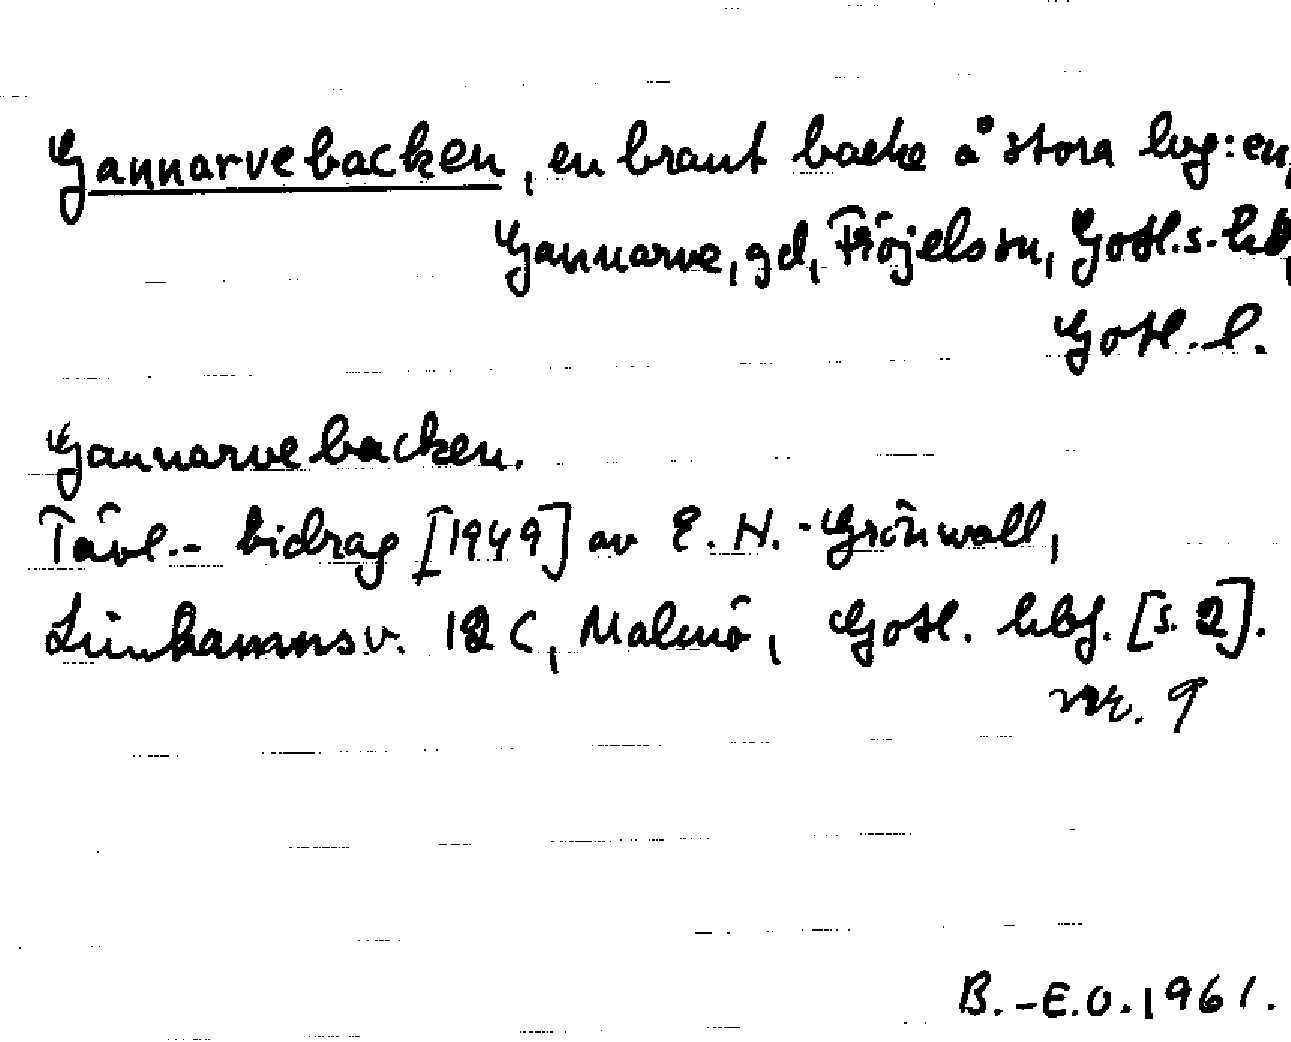 Gannarvebacken, en brant backe å stora lvg:en,
Gannarve, gd, Fröjels sn, Gotl.s. hd,
Gotl. l.
Gannarvebacken.
Tävl.- bidrag [1949] av E. H. -Grönwall,
Limhamnsv. 12 C, Malmö, Gotl. hbf. [s. 2].
nr. 9
B.-E.O. 1961.